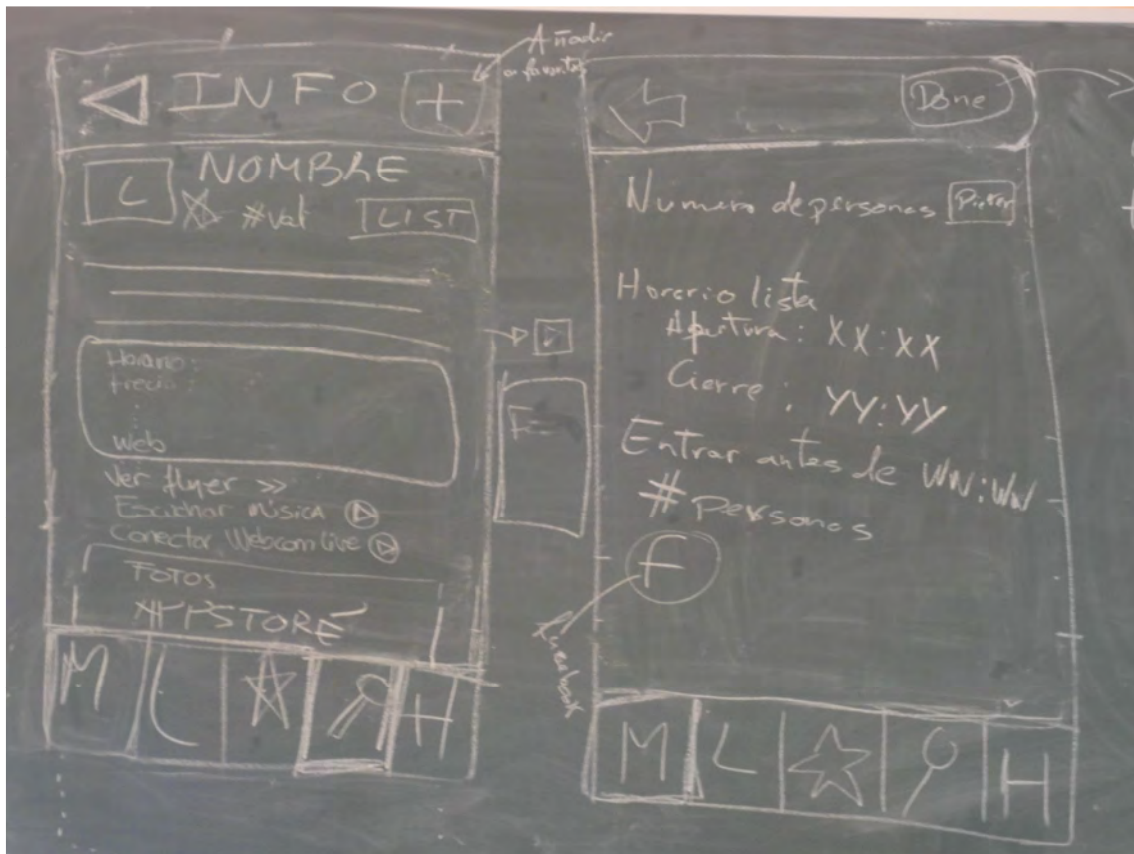 Añadir
a favoritos
INFO +
L NOMBRE
#val LIST
Horario:
Precio:
:
Web
Ver flyer >>
Escuchar música
Conectar Webcam live
FOTOS
APPSTORE
M L H
F
Done
Numero de personas
Horario lista
Apertura: XX:XX
Cierre: YY:YY
Entrar antes de WW:WW
# personas
f
Facebook
M L H